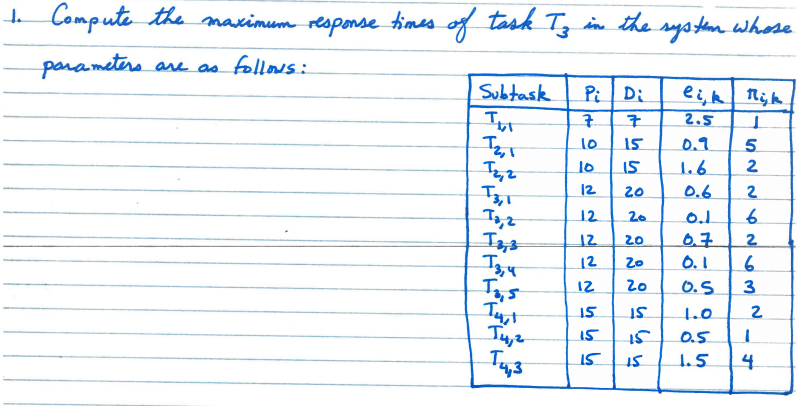 1. Compute the maximum response times of task T3 in the system whose
parameters are as follows:
Subtask Pi Di ei,k πi,k
T1,1 7 7 2.5 1
T2,1 10 15 0.9 5
T2,2 10 15 1.6 2
T3,1 12 20 0.6 2
T3,2 12 20 0.1 6
T3,3 12 20 0.7 2
T3,4 12 20 0.1 6
T3,5 12 20 0.5 3
T4,1 15 15 1.0 2
T4,2 15 15 0.5 1
T4,3 15 15 1.5 4